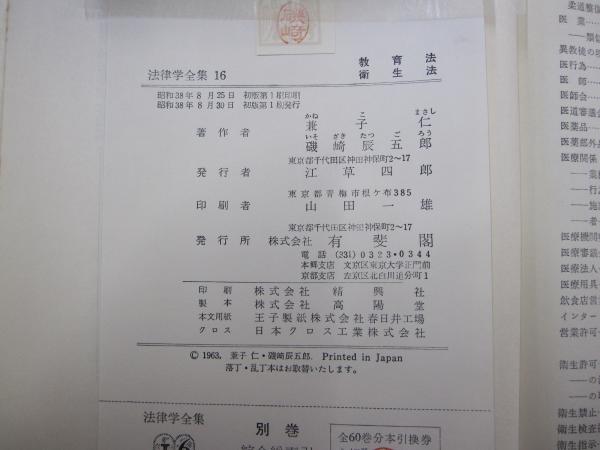 磯崎
法律学全集 16 教育法
衛生法
昭和38年8月25日 初版第1刷印刷
昭和38年8月30日 初版第1刷発行
かね こ まさし
著作者 兼子仁
いそ ざき たつ ご ろう
磯崎辰五郎
東京都千代田区神田神保町2~17
発行者 江草四郎
東京都青梅市根ヶ布385
印刷者 山田一雄
東京都千代田区神田神保町2~17
発行所 株式会社 有斐閣
電話 (331) 0323・0344
本郷支店 文京区東京大学正門前
京都支店 左京区北白川追分町1
印刷 株式会社 精興社
製本 株式会社 高陽堂
本文用紙 王子製紙株式会社春日井工場
クロス 日本クロス工業株式会社
© 1963, 兼子 仁・磯崎辰五郎. Printed in Japan
落丁・乱丁本はお取替いたします。
法律学全集
別巻
全60巻分本引換券
柔道整復
医業……
異教後の
医行為……
医師……
医師会……
医道審議会
医薬品……
医薬部外品
医療関係
医療機関
医療審議会
医療法人
医療用具
飲食店営
インター
営業許可
衛生許可
――の
――の
衛生禁止
衛生検査
衛生指示